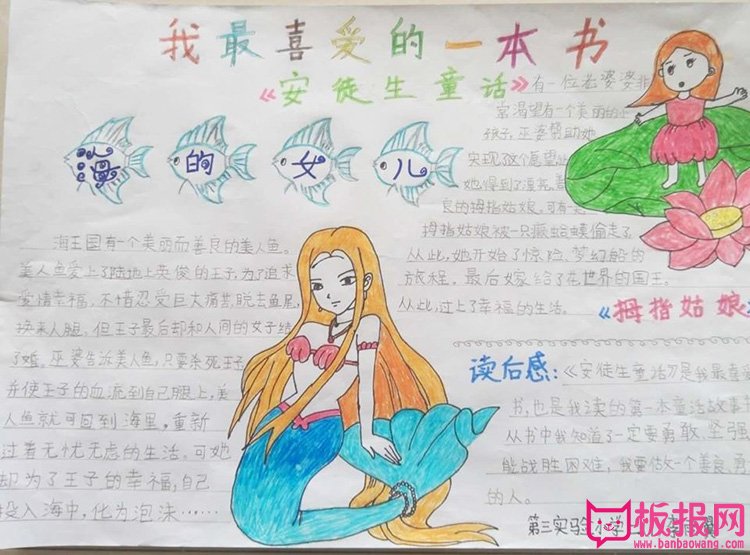 我最喜爱的一本书
《安徒生童话》
海的女儿
海王国有一个美丽而善良的美人鱼。
美人鱼爱上了陆地上英俊的王子为了追求
爱情幸福，不惜忍受巨大痛苦脱去鱼尾，
换来人腿，但王子最后却和人间的女子结
了婚。巫婆告诉美人鱼，只要杀死王子
并使王子的血流到自己腿上，美
人鱼就可回到海里，重新
过着无忧无虑的生活。可她
却为了王子的幸福，自己
投入海中，化为泡沫……
有一位老婆婆非
常渴望有一个美丽的小
孩子，巫婆帮助她
实现这个愿望
她得到了漂亮善
良的拇指姑娘。可有一
拇指姑娘被一只癞蛤蟆偷走了
从此，她开始了惊险、梦幻般的
旅程，最后嫁给了花世界的国王。
从此，过上了幸福的生活。
《拇指姑娘
读后感：《安徒生童话》是我最喜
书，也是我读的第一本童话故事
从书中我知道了一定要勇敢、坚强
能战胜困难，我要做一个善良、勇
的人。
第三实验小学
板报网
www.banbaowang.com